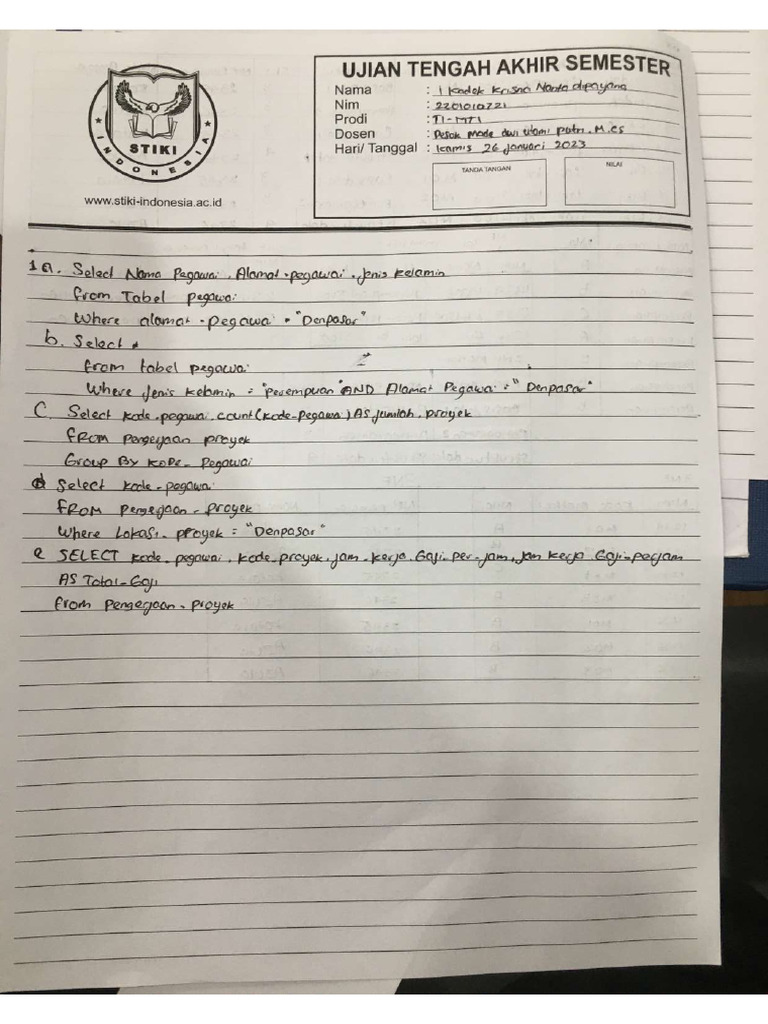 UJIAN TENGAH AKHIR SEMESTER
Nama : I Kadek Krisna Nanta dipayana
Nim : 2201010221
Prodi : TI-MTI
Dosen : Desak Made dwi utami putri. M.cs
Hari/ Tanggal : kamis 26 januari 2023
TANDA TANGAN
NILAI
STIKI
INDONESIA
www.stiki-indonesia.ac.id
1 a. Select Nama Pegawai, Alamat-pegawai, Jenis kelamin
from Tabel pegawai
where alamat-pegawai = "Denpasar"
b. Select *
from tabel pegawai
Where Jenis kelamin = "perempuan" AND Alamat Pegawai = "Denpasar"
C. Select kode-pegawai, count(kode-pegawai) AS jumlah-proyek
FROM Pengerjaan proyek
Group By KODE-Pegawai
d Select kode-pegawai
FROM Pengerjaan-proyek
Where Lokasi-proyek = "Denpasar"
e SELECT kode-pegawai, kode-proyek, jam-kerja, Gaji-per-jam, jam kerja Gaji-perjam
AS Total-Gaji
from Pengerjaan-proyek